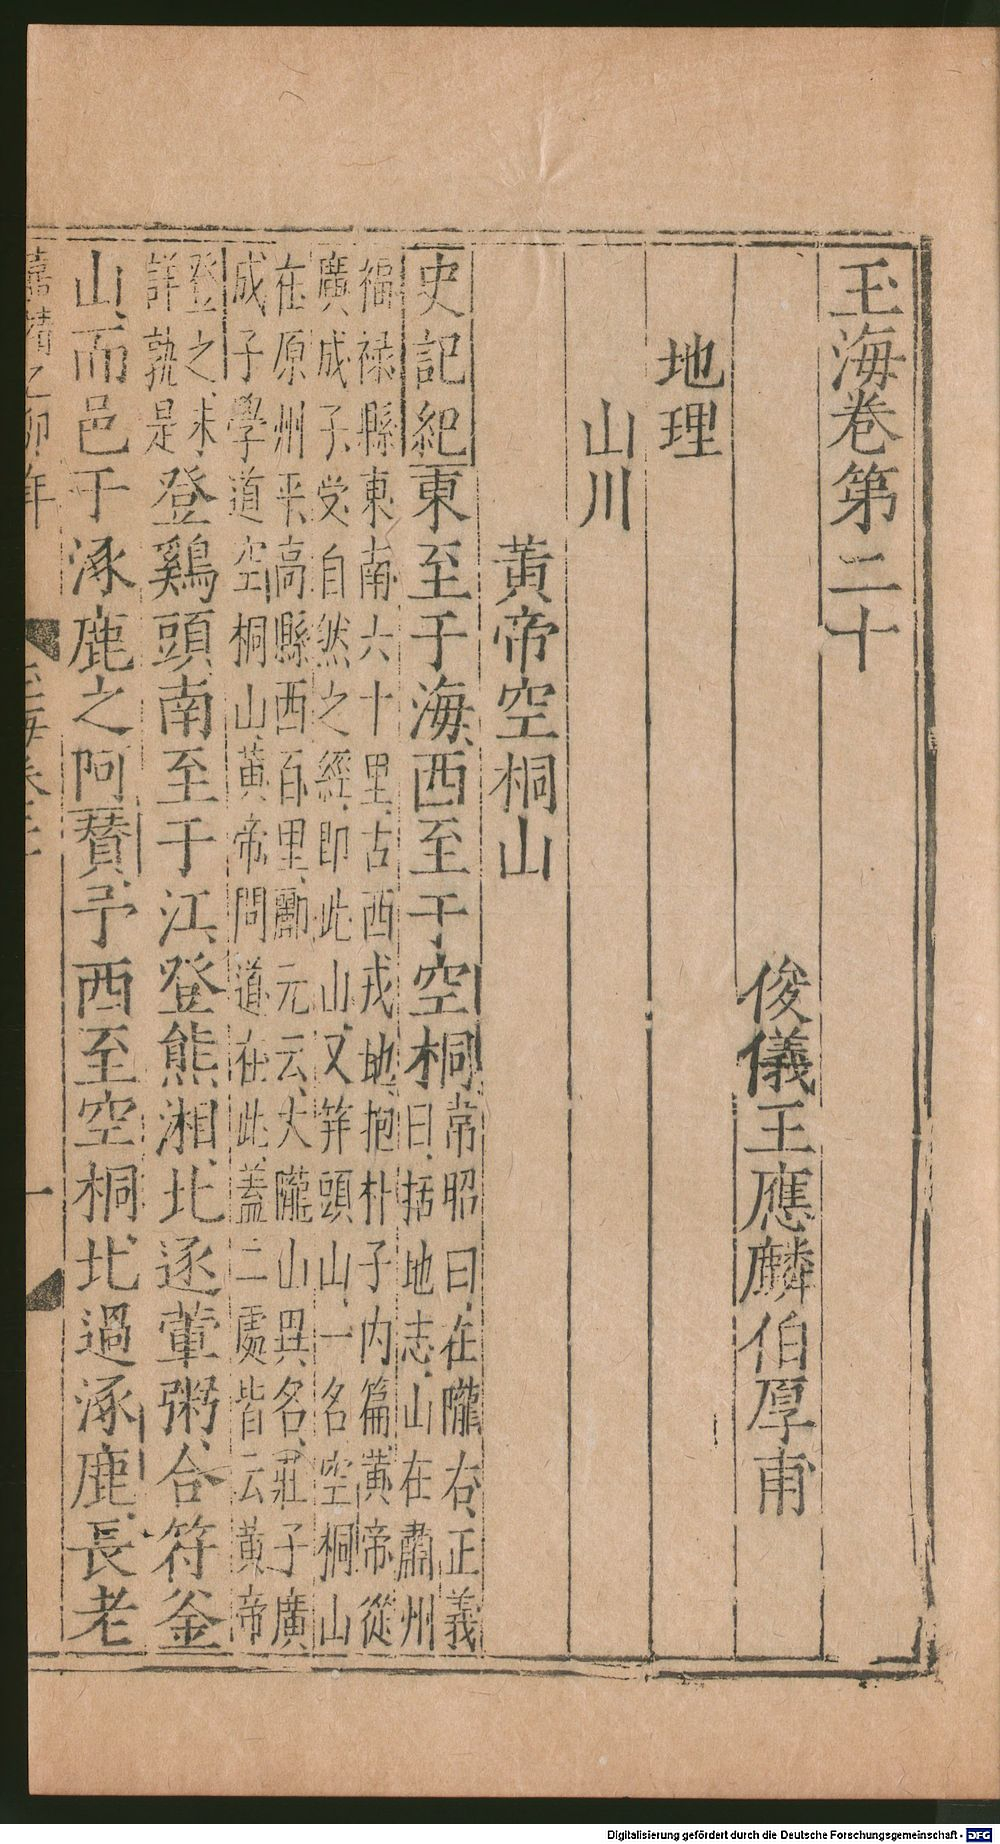 玉海卷第二十
俊儀王應麟伯厚甫
地理
山川
黃帝空桐山
史記紀東至于海西至于空桐
常昭曰在隴右正義
曰括地志山在肅州
福禄縣東南六十里古西戎地抱朴子内篇黃帝從
廣成子受自然之經即此山又笄頭山一名空桐山
在原州平高縣西百里酈元云大隴山異名莊子廣
成子學道空桐山黃帝問道在此蓋二處皆云黃帝
登之未
詳孰是
登鷄頭南至于江登熊湘北逐葷粥合符釜
山而邑于涿鹿之阿贊予西至空桐北過涿鹿長老
嘉靖乙卯年
玉海卷二十
一
Digitalisierung gefördert durch die Deutsche Forschungsgemeinschaft - DFG